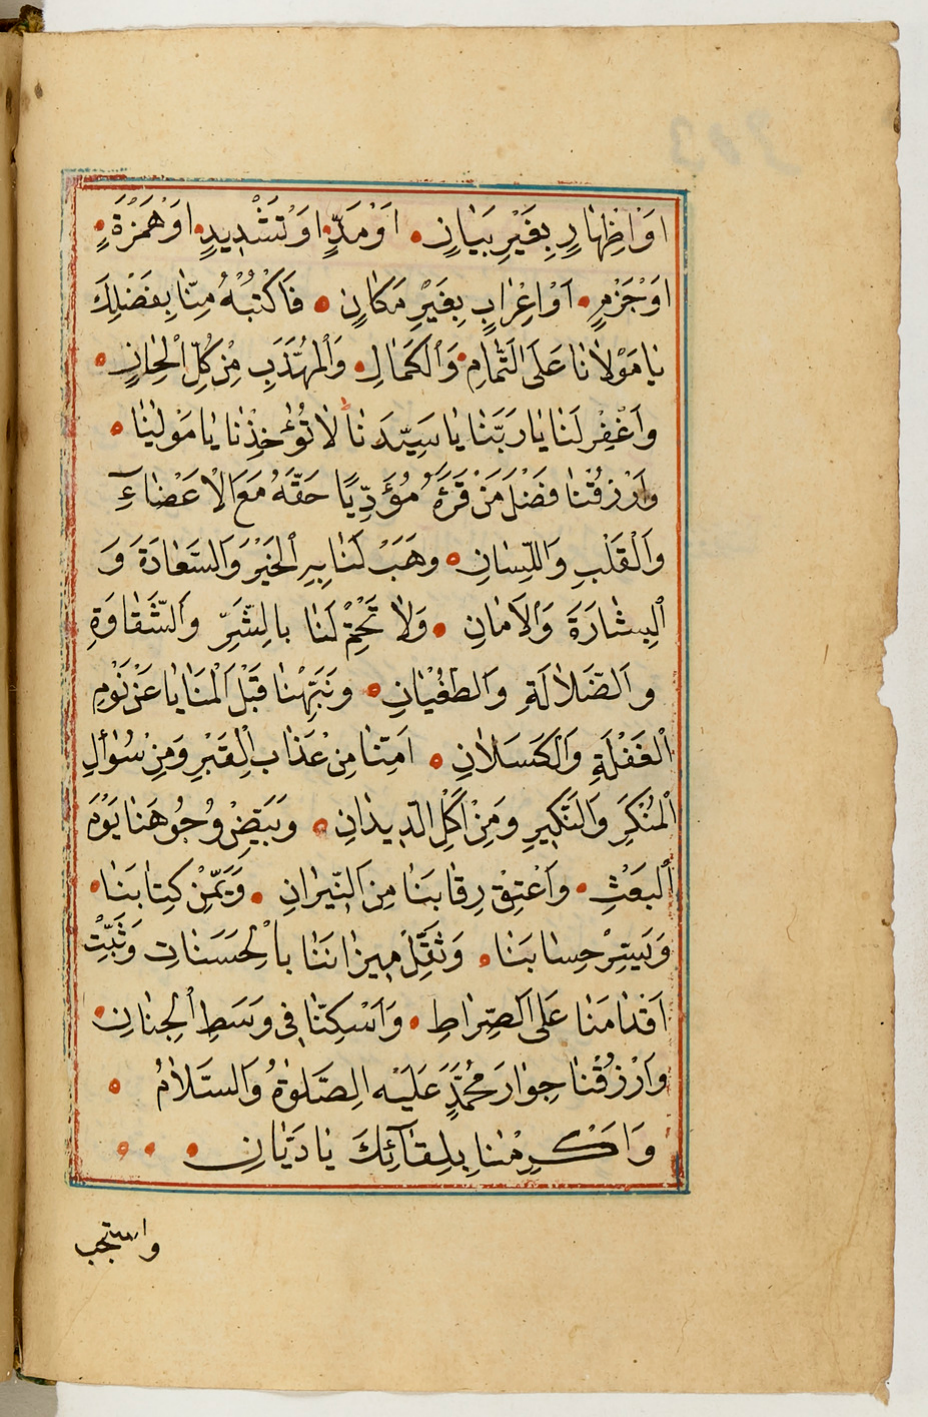 اَوْ اِظْهَارٍ بِغَيْرِ بَيَانٍ اَوْ مَدٍّ اَوْ تَشْدِيدٍ اَوْ هَمْزَةٍ
اَوْ جَزْمٍ اَوْ اِعْرَابٍ بِغَيْرِ مَكَانٍ فَاكْتُبْهُ مِنَّا بِفَضْلِكَ
يَا مَوْلَانَا عَلَى التَّمَامِ وَالْكَمَالِ وَالْمُهَذَّبِ مِنْ كُلِّ الْحَانٍ
وَاغْفِرْ لَنَا يَا رَبَّنَا يَا سَيِّدَنَا لَا تُؤَخِذْنَا يَا مَوْلَيْنَا
وَارْزُقْنَا فَضْلَ مَنْ قَرَءَهُ مُؤَدِّيًا حَقَّهُ مَعَ الْاَعْضَاءِ
وَالْقَلْبِ وَاللِّسَانِ وَهَبْ لَنَا بِهِ الْخَيْرَ وَالسَّعَادَةَ وَ
الْبِشَارَةَ وَالْاَمَانِ وَلَا تَخْتِمْ لَنَا بِالشَّرِّ وَالشَّقَاوَةِ
وَالضَّلَالَةِ وَالطُّغْيَانِ وَنَبِّهْنَا قَبْلَ الْمَنَايَا عَنْ نَوْمِ
الْغَفْلَةِ وَالْكَسَلَانِ اَمِنَّا مِنْ عَذَابِ الْقَبْرِ وَمِنْ سُؤَالِ
الْمُنْكَرِ وَالنَّكِيرِ وَمِنْ اَكْلِ الدِّيدَانِ وَبَيِّضْ وُجُوهَنَا يَوْمَ
الْبَعْثِ وَاَعْتِقْ رِقَابَنَا مِنَ النِّيرَانِ وَيَمِّنْ كِتَابَنَا
وَيَسِّرْ حِسَابَنَا وَثَقِّلْ مِيزَانَنَا بِالْحَسَنَاتِ وَثَبِّتْ
اَقْدَامَنَا عَلَى الصِّرَاطِ وَاَسْكِنَّا فِي وَسَطِ الْجِنَانِ
وَارْزُقْنَا جِوَارَ مُحَمَّدٍ عَلَيْهِ الصَّلٰوةُ وَالسَّلَامُ
وَاَكْرِمْنَا بِلِقَائِكَ يَا دَيَّانِ
واستجب